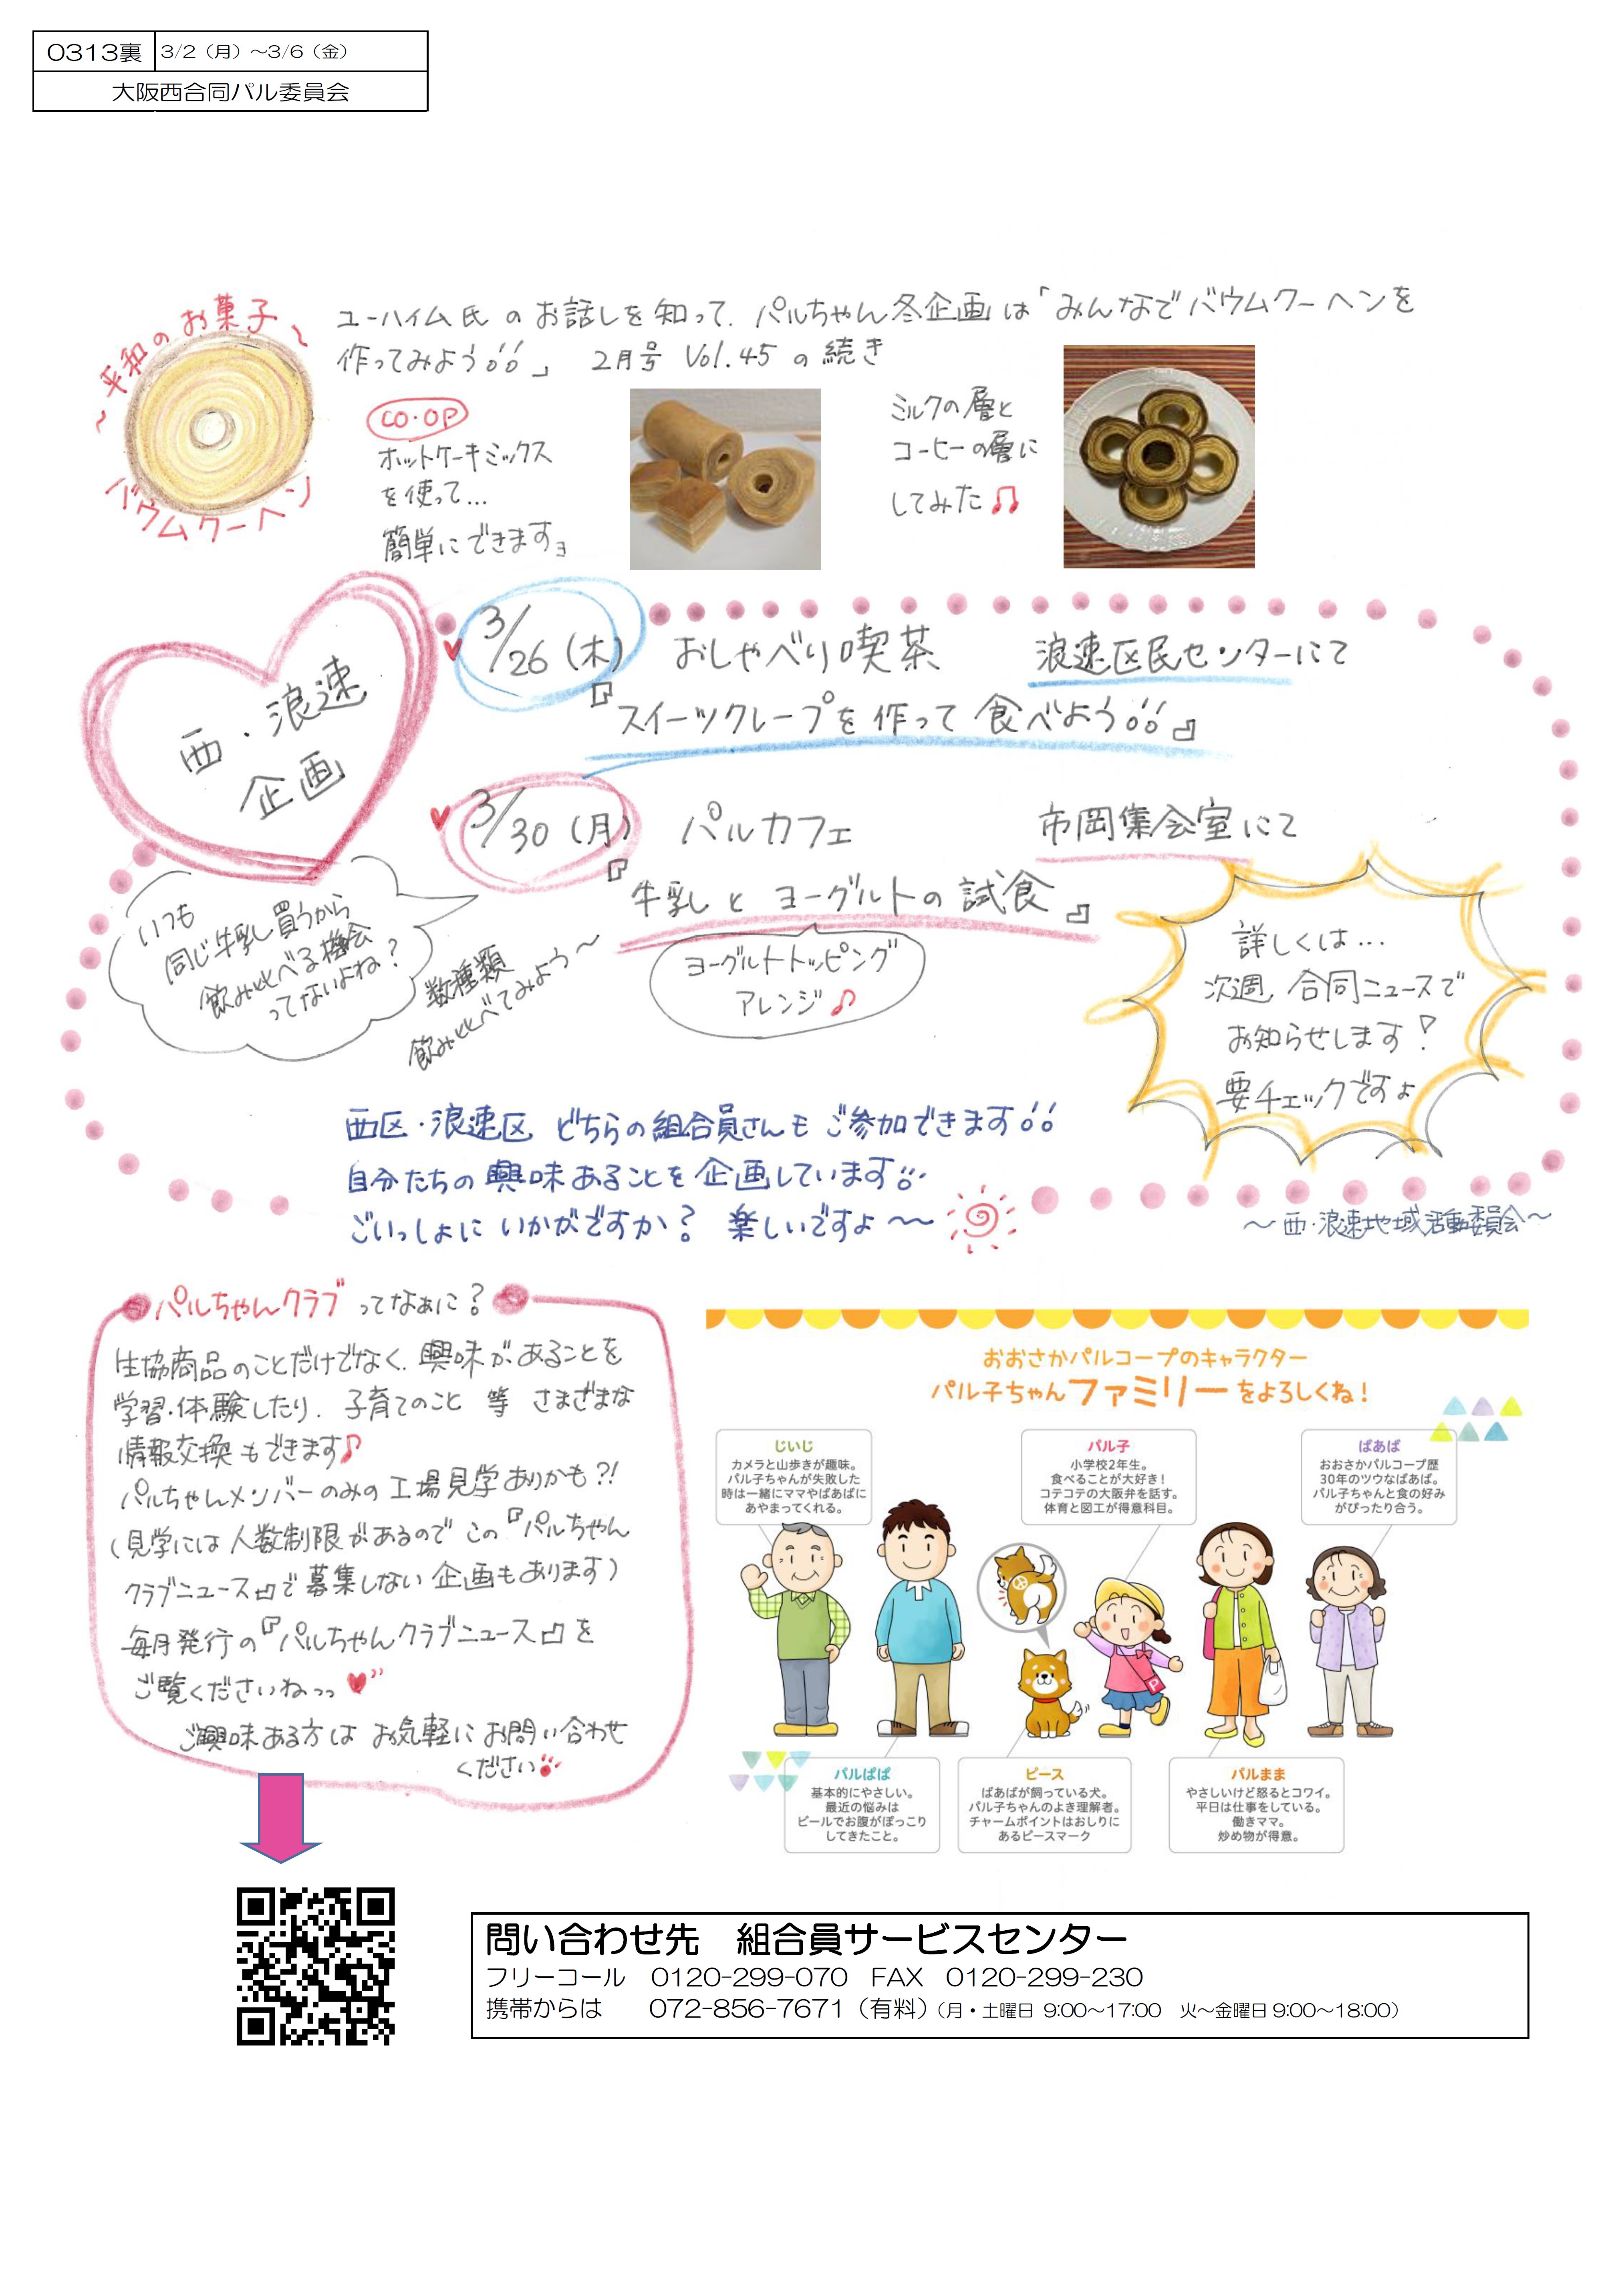 0313裏
3/2（月）～3/6（金）
大阪西合同パル委員会
～平和のお菓子～
バウムクーヘン
ユーハイム氏のお話しを知って、パルちゃん冬企画は「みんなでバウムクーヘンを
作ってみよう!!」 2月号 Vol.45 の続き
CO・OP
ホットケーキミックス
を使って…
簡単にできますョ
ミルクの層と
コーヒーの層に
してみた♫
西・浪速
企画
3/26（木） おしゃべり喫茶 浪速区民センターにて
『スイーツクレープを作って食べよう!!』
3/30（月） パルカフェ 市岡集会室にて
『牛乳とヨーグルトの試食』
ヨーグルトトッピング
アレンジ♪
いつも
同じ牛乳買うから
飲み比べる機会
ってないよね？
数種類
飲み比べてみよう～
詳しくは…
次週、合同ニュースで
お知らせします！
要チェックですよ
西区・浪速区 どちらの組合員さんも ご参加できます!!
自分たちの興味あることを企画しています!!
ごいっしょに いかがですか？ 楽しいですよ～
～西・浪速地域活動委員会～
パルちゃんクラブってなぁに？
生協商品のことだけでなく、興味があることを
学習・体験したり、子育てのこと 等 さまざまな
情報交換もできます♪
パルちゃんメンバーのみの工場見学ありかも?!
（見学には人数制限があるのでこの『パルちゃん
クラブニュース』で募集しない企画もあります）
毎月発行の『パルちゃんクラブニュース』を
ご覧くださいねっっ♥
ご興味ある方は お気軽にお問い合わせ
ください
おおさかパルコープのキャラクター
パル子ちゃんファミリーをよろしくね！
じいじ
カメラと山歩きが趣味。
パル子ちゃんが失敗した
時は一緒にママやばあばに
あやまってくれる。
パル子
小学校2年生。
食べることが大好き！
コテコテの大阪弁を話す。
体育と図工が得意科目。
ばあば
おおさかパルコープ歴
30年のツウなばあば。
パル子ちゃんと食の好み
がぴったり合う。
P
パルぱぱ
基本的にやさしい。
最近の悩みは
ビールでお腹がぽっこり
してきたこと。
ピース
ばあばが飼っている犬。
パル子ちゃんのよき理解者。
チャームポイントはおしりに
あるピースマーク
パルまま
やさしいけど怒るとコワイ。
平日は仕事をしている。
働きママ。
炒め物が得意。
問い合わせ先 組合員サービスセンター
フリーコール 0120-299-070 FAX 0120-299-230
携帯からは 072-856-7671（有料）（月・土曜日 9:00～17:00 火～金曜日9:00～18:00）